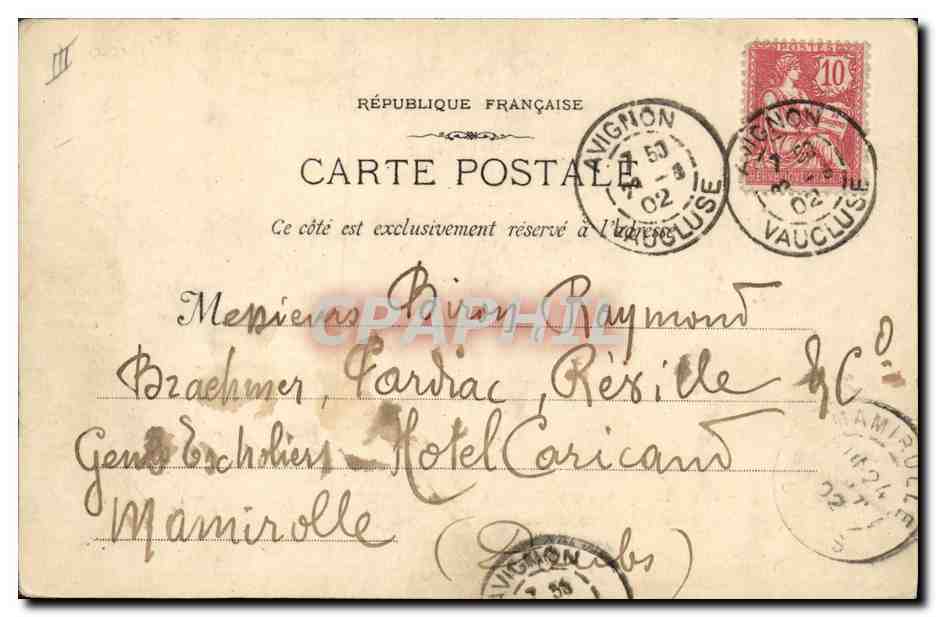 III
RÉPUBLIQUE FRANÇAISE
POSTES
10
CARTE POSTALE
AVIGNON
7 50
02
VAUCLUSE
AVIGNON
02
VAUCLUSE
Ce côté est exclusivement réservé à l'adresse
CPAPHIL
Messieurs Biron, Raymond
Braehmer, Tardiac, Réville & Co
Gens Escholiers - Hotel Caricand
Mamirolle (Doubs)
MAMIROLLE
02
AVIGNON